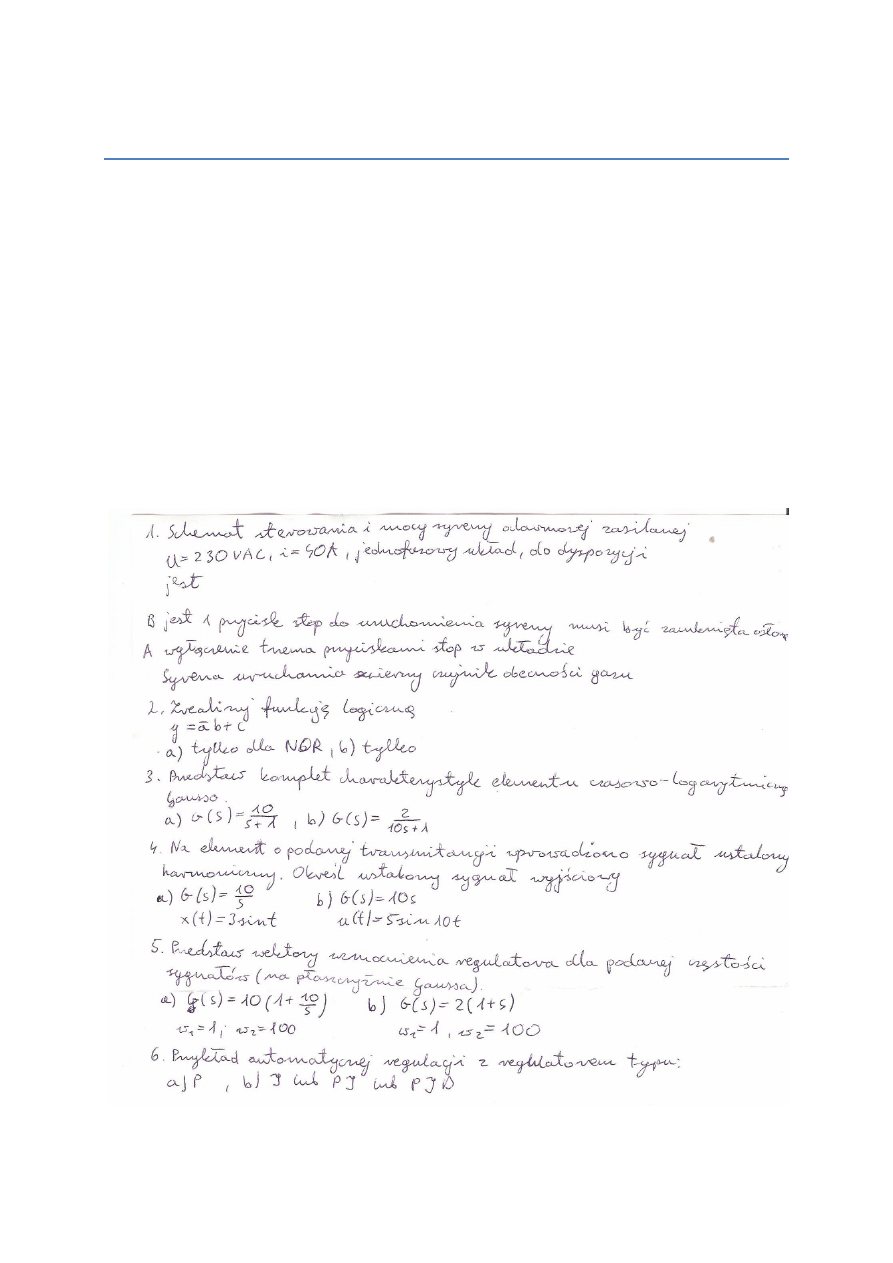 1. Schemat sterowania i mocy syreny alarmowej zasilanej
U=230VAC, i=40A, jednofazowy układ, do dyspozycji
jest
B jest 1 przycisk stop do uruchomienia syreny musi być zamknięta osłona
A wyłączenie trzema przyciskami stop w układzie
Syrena uruchamia zwierny czujnik obecności gazu
2. Zrealizuj funkcję logiczną
y = a̅b+c
a) tylko dla NOR, b) tylko
3. Przedstaw komplet charakterystyk elementu czasowo-logarytmiczną
Gaussa.
a) G(s)=10/(s+1) , b) G(s)= 2/(10s+1)
4. Na element o podanej transmitancji wprowadzono sygnał ustalony
harmoniczny. Określ ustalony sygnał wyjściowy
a) G(s)=10/s b) G(s)=10s
x(t)=3sint u(t)=5sin10t
5. Przedstaw wektory wzmocnienia regulatora dla podanej częstości
sygnałów (na płaszczyźnie Gaussa).
a) G(s)=10(1+10/s) b) G(s)=2(1+s)
ω₁=1, ω₂=100 ω₁=1, ω₂=100
6. Przykład automatycznej regulacji z regulatorem typu:
a) P , b) I lub PI lub PID